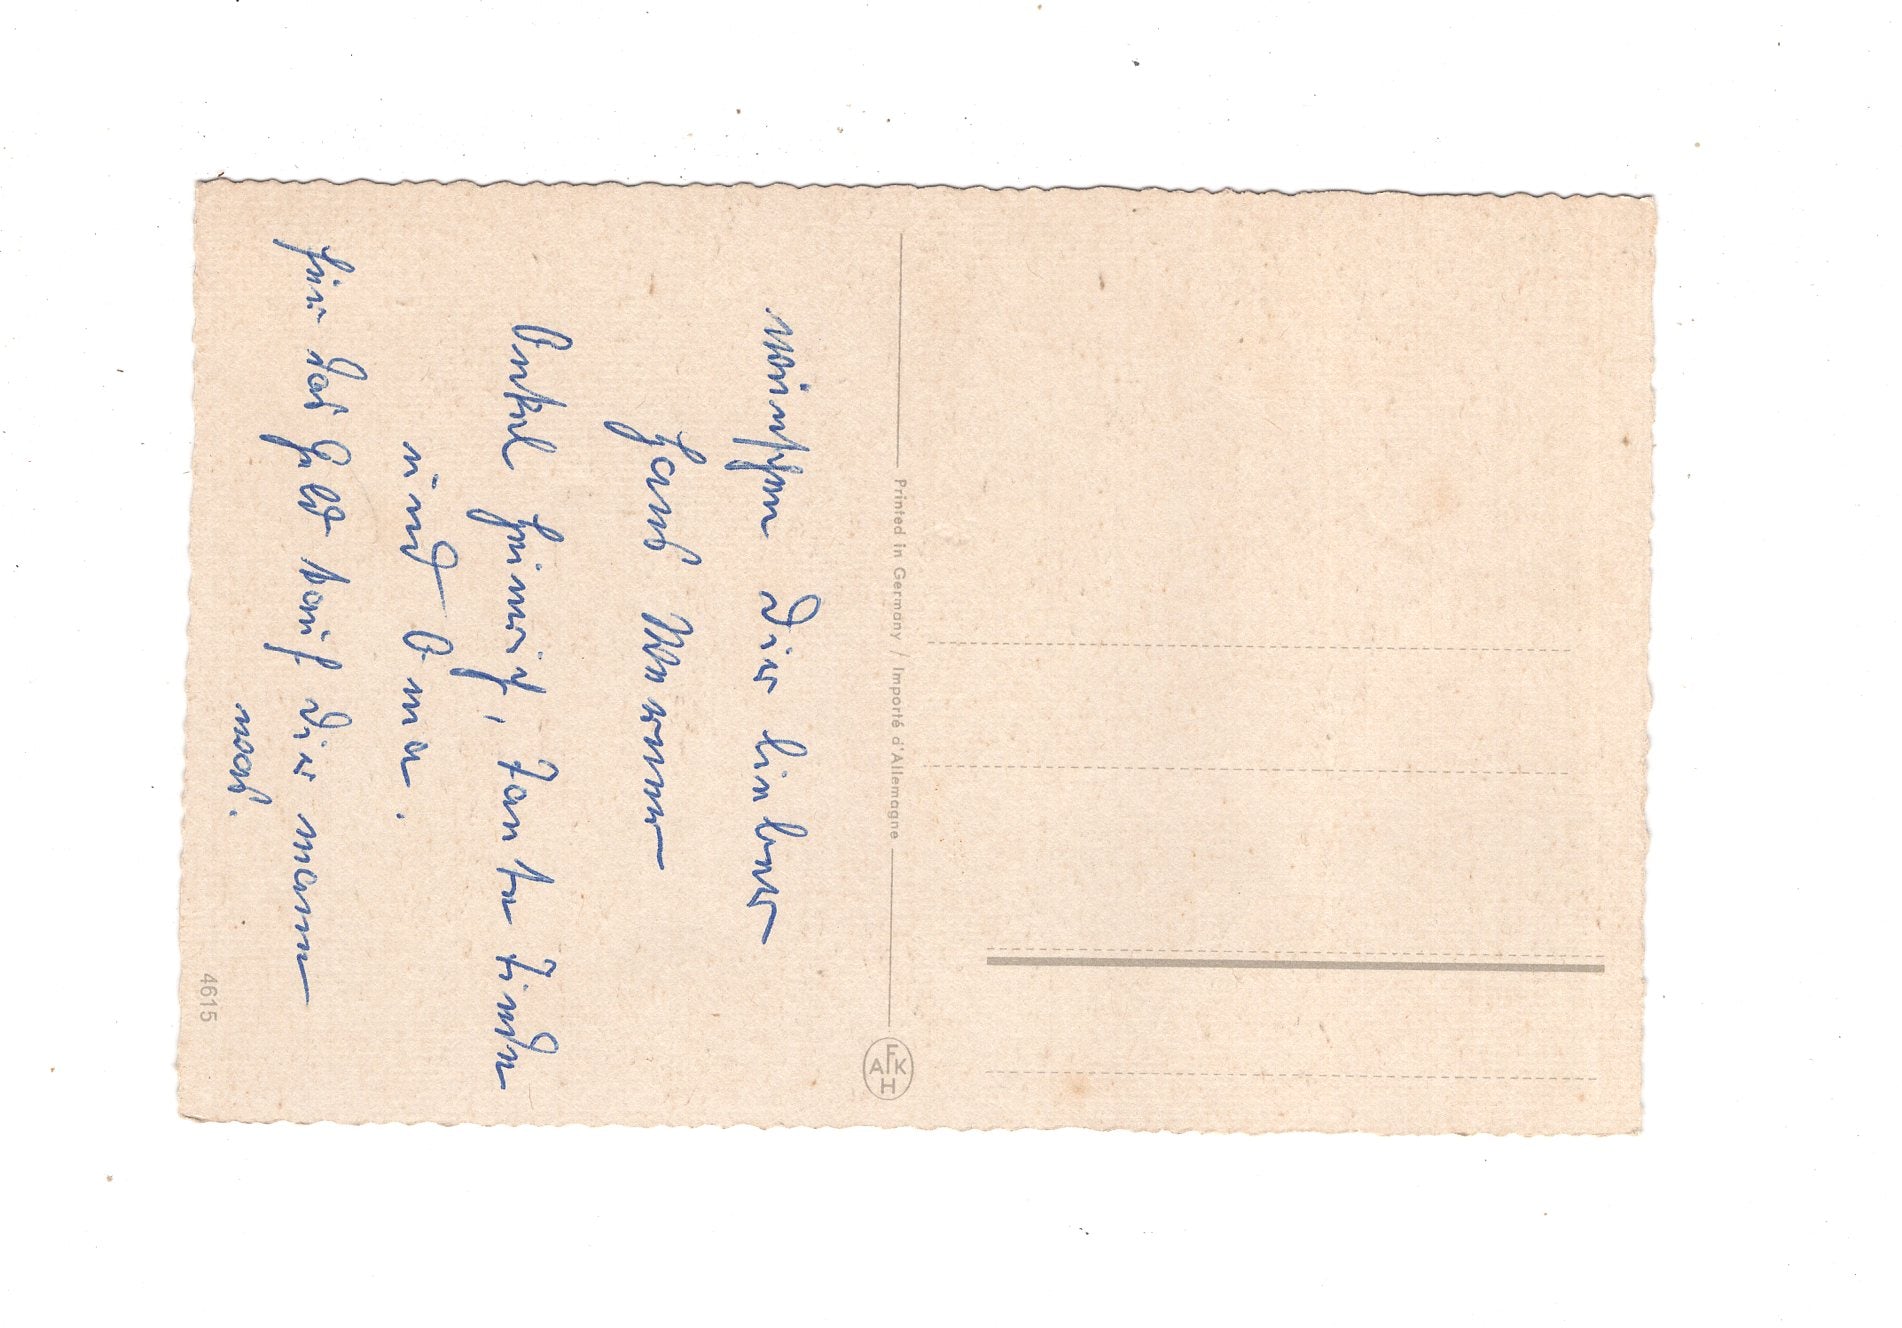 wünschen Dir lieber
Hans Werner
Onkel Heinrich, Tante Linde
und Oma.
Für das Geld kauf Dir mamme
was.
Printed in Germany / Importé d'Allemagne
AFKH
4615